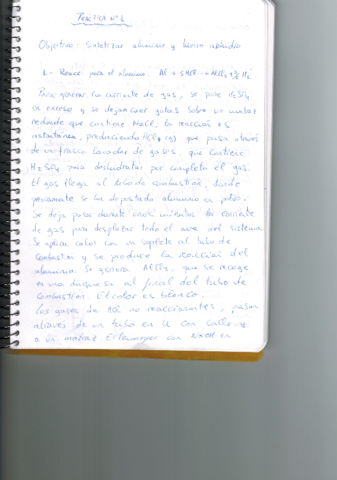 PRACTICA Nº 6
Objetivo: Sintetizar aluminio y hierro
1.- Reacc. para el aluminio: Al + 3HCl → AlCl3 + 3/2 H2
Para generar la corriente de gas, se pone H2SO4
en exceso y se dejan caer gotas sobre un matraz
redondo que contiene NaCl, la reacción es
instantánea, produciendo HCl (g) que pasa a través
de un frasco lavador de gases, que contiene
H2SO4 para deshidratar por completo el gas.
El gas llega al tubo de combustión, donde
previamente se ha depositado aluminio en polvo.
Se deja pasar durante unos minutos la corriente
de gas para desplazar todo el aire del sistema.
Se aplica calor con un soplete al tubo de
combustión y se produce la reacción del
aluminio. Se genera AlCl3, que se recoge
en una al final del tubo de
combustión. El color es blanco.
Los gases de HCl no reaccionantes, pasan
a través de un tubo en U con CaCl2 y
a un matraz Erlenmeyer con en